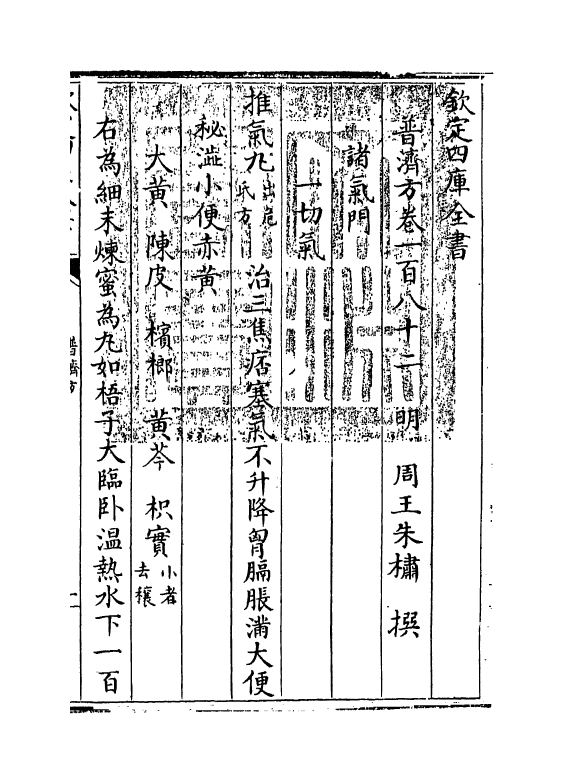 欽定四庫全書
普濟方卷一百八十二　明　周王朱橚　撰
諸氣門
一切氣
推氣丸出危氏方　治三焦痞塞氣不升降胷膈脹滿大便
秘澁小便赤黄
大黄　陳皮　檳榔　黄芩　枳實小者去穰
右為細末煉蜜為丸如梧子大臨卧温熱水下一百
普濟方